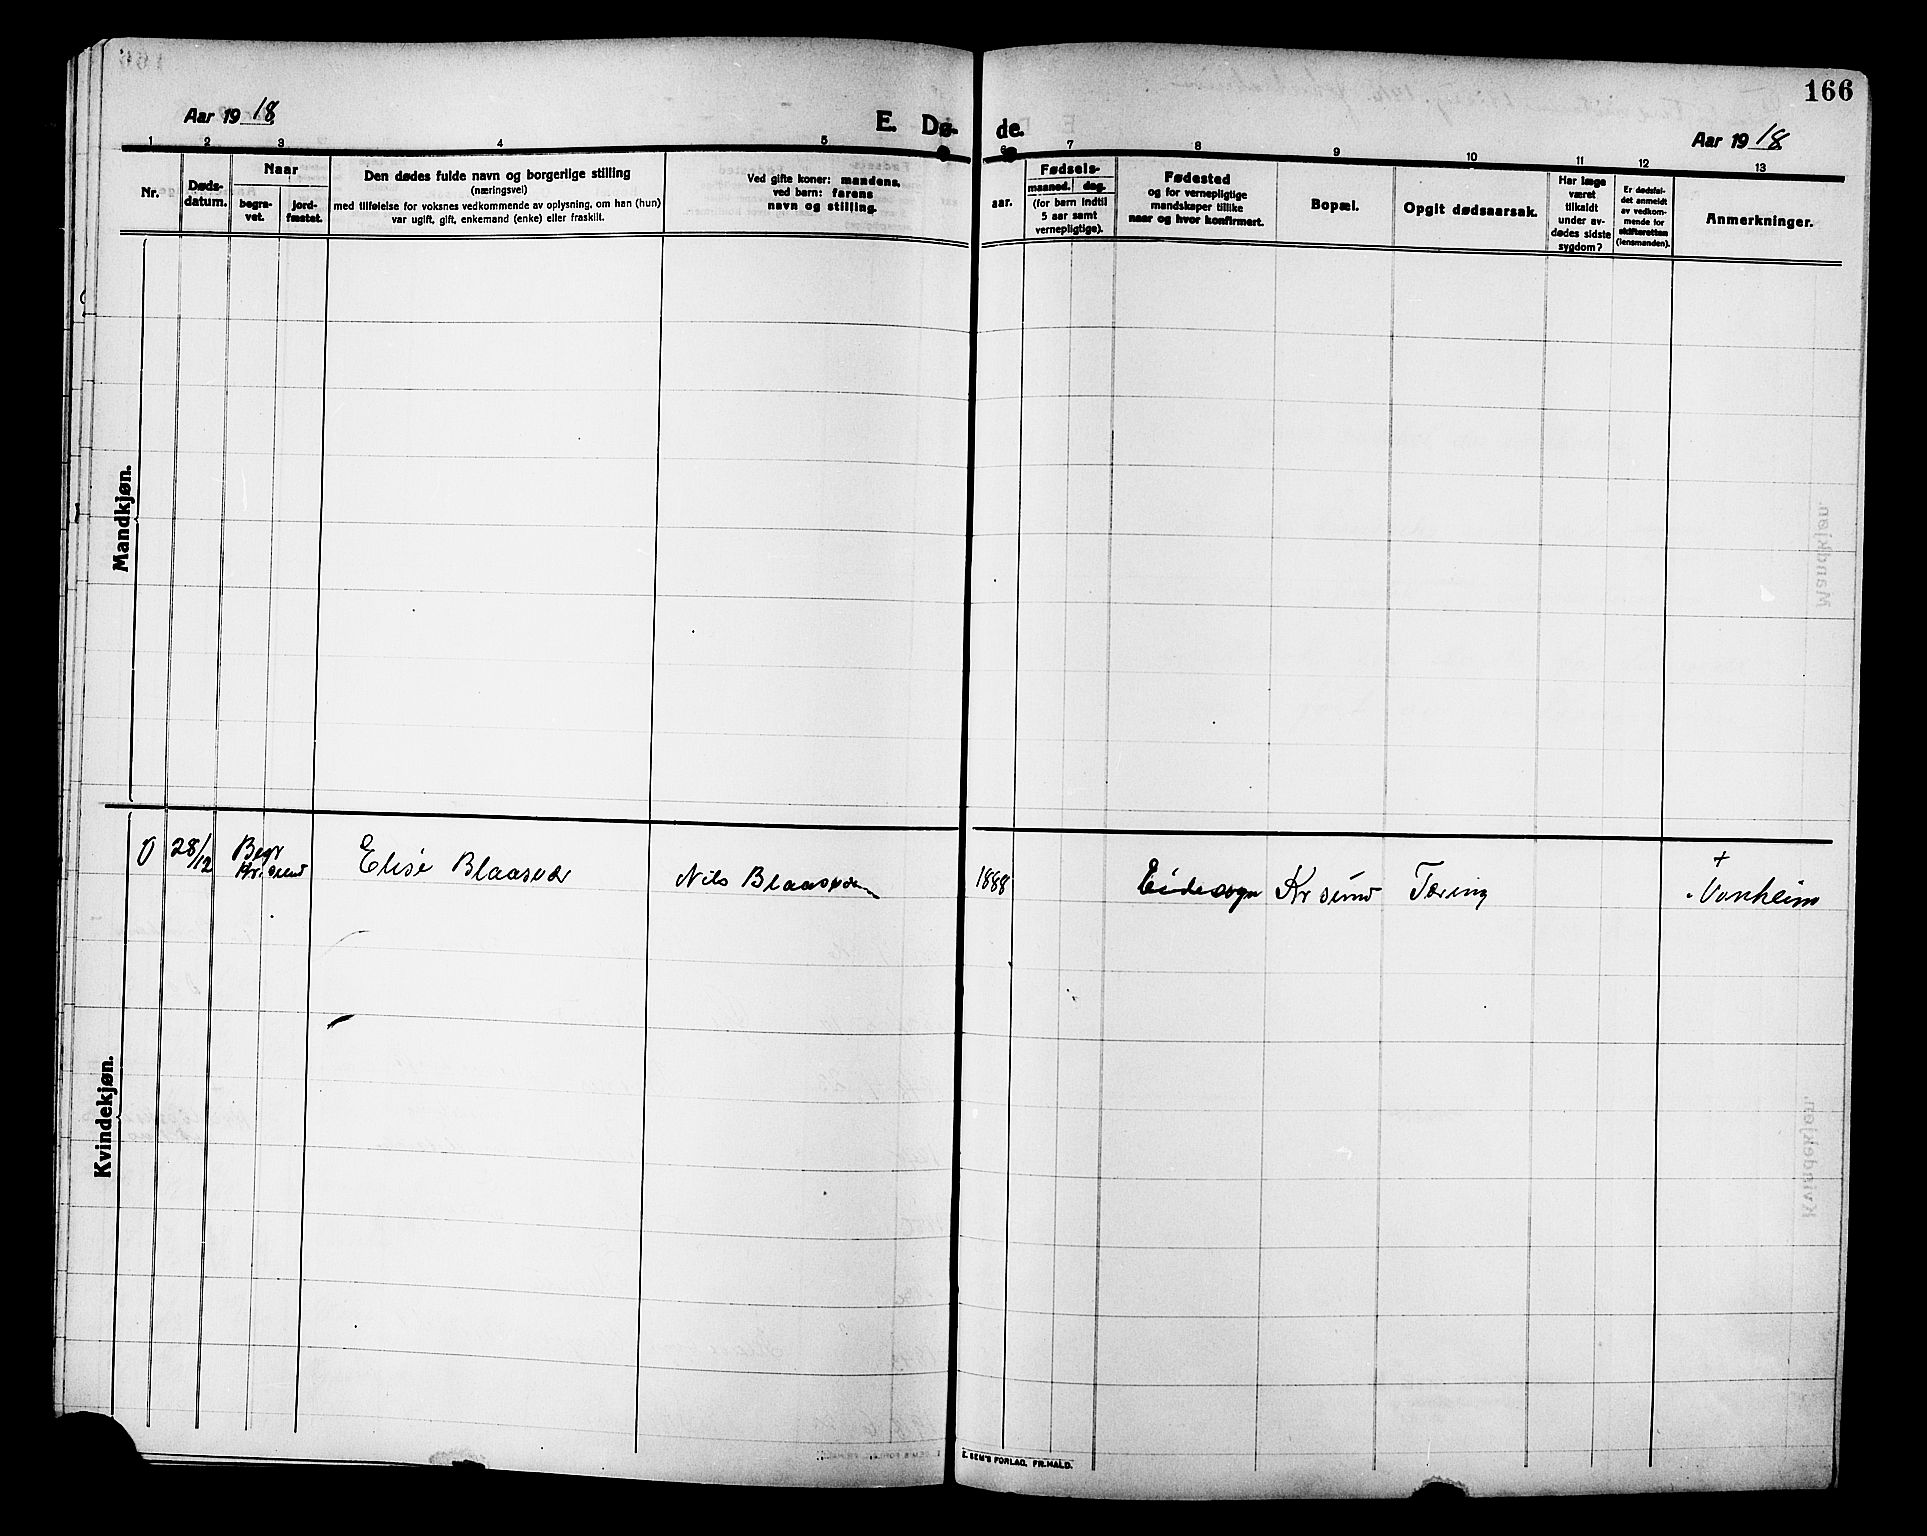 166
Aar 1918
E. Dø-
de.
Aar 1918
1 2 3 4 5 6 7 8 9 10 11 12 13
Nr.
Døds-
datum.
Naar
begra-
vet.
jord-
fæstet.
Den dødes fulde navn og borgerlige stilling
(næringsvei)
med tilføielse for voksnes vedkommende av oplysning, om han (hun)
var ugift, gift, enkemand (enke) eller fraskilt.
Ved gifte koner: mandens,
ved børn: farens
navn og stilling.
aar.
Fødsels-
maaned. dag.
(for børn indtil
5 aar samt
vernepligtige).
Fødested
og for vernepligtige
mandskaper tillike
naar og hvor konfirmert.
Bopæl.
Opgit dødsaarsak.
Har læge
været
tilkaldt
under av-
dødes sidste
sygdom?
Er dødsfal-
det anmeldt
av vedkom-
mende for
skifteretten
(lensmanden).
Anmerkninger.
Mandkjøn.
Kvindekjøn.
0 28/12 Begr Kr.sund Elise Blaasvær Nils Blaasvær 1888 Eidesogn Kr sund Tæring + Vonheim
E. SEM'S FORLAG, FR.HALD.